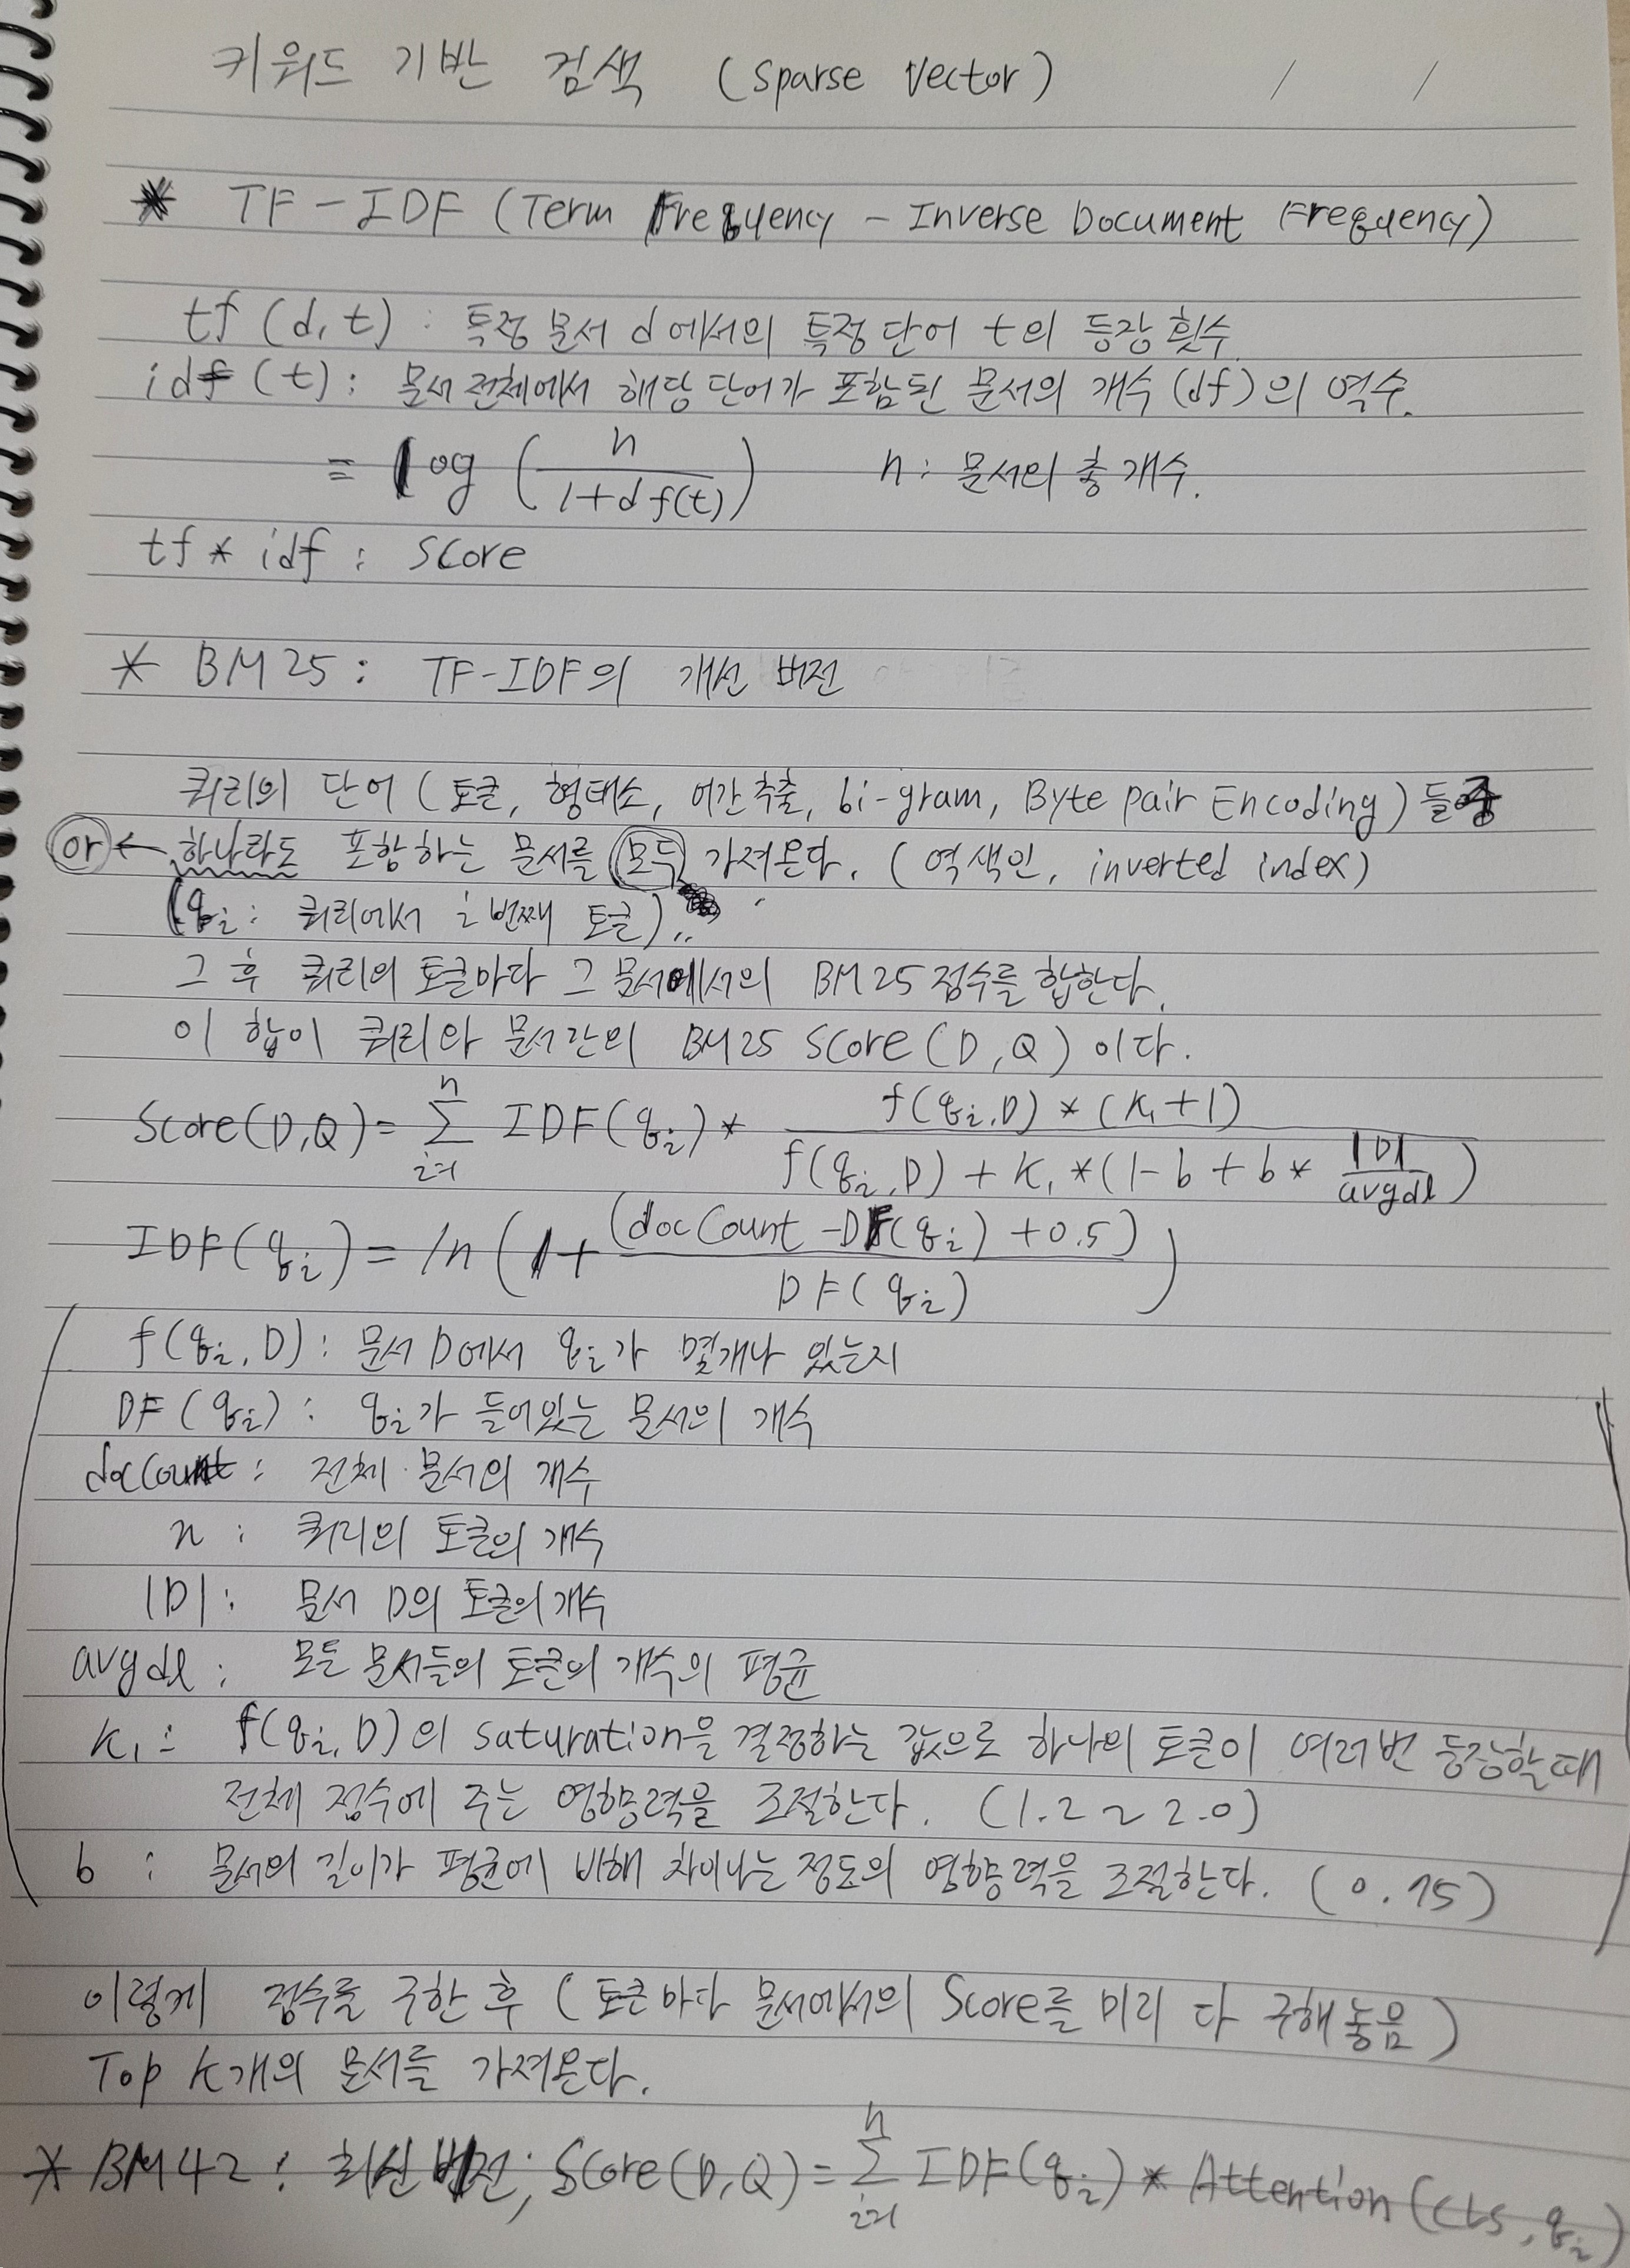 키워드 기반 검색 (Sparse Vector) / /
* TF-IDF (Term Frequency - Inverse Document Frequency)
tf (d, t) : 특정 문서 d에서의 특정 단어 t의 등장 횟수.
idf (t) : 문서 전체에서 해당 단어가 포함된 문서의 개수 (df)의 역수.
= log ( n / (1+df(t)) ) n : 문서의 총 개수.
tf * idf : Score
* BM25 : TF-IDF의 개선 버전
쿼리의 단어 (토큰, 형태소, 어간추출, bi-gram, Byte pair Encoding) 들중
or ← 하나라도 포함하는 문서를 모두 가져온다. (역색인, inverted index)
(qi : 쿼리에서 i 번째 토큰)
그 후 쿼리의 토큰마다 그 문서에서의 BM25 점수를 합한다.
이 합이 쿼리와 문서간의 BM25 Score(D,Q) 이다.
Score(D,Q) = Σ i=1 n IDF(qi) * f(qi,D) * (k1+1) / ( f(qi,D) + k1 * (1-b+b * |D| / avgdl) )
IDF(qi) = ln ( 1 + (docCount - DF(qi) + 0.5) / DF(qi) )
f(qi, D) : 문서 D에서 qi가 몇개나 있는지
DF (qi) : qi가 들어있는 문서의 개수
docCount : 전체 문서의 개수
n : 쿼리의 토큰의 개수
|D| : 문서 D의 토큰의 개수
avgdl : 모든 문서들의 토큰의 개수의 평균
k1 : f(qi, D)의 saturation을 결정하는 값으로 하나의 토큰이 여러번 등장할때
전체 점수에 주는 영향력을 조절한다. (1.2 ~ 2.0)
b : 문서의 길이가 평균에 비해 차이나는 정도의 영향력을 조절한다. (0.75)
이렇게 점수를 구한 후 (토큰마다 문서에서의 Score를 미리 다 구해놓음)
Top K개의 문서를 가져온다.
* BM42 : 최신 버전; Score(D,Q) = Σ i=1 n IDF(qi) * Attention (CLS, qi)